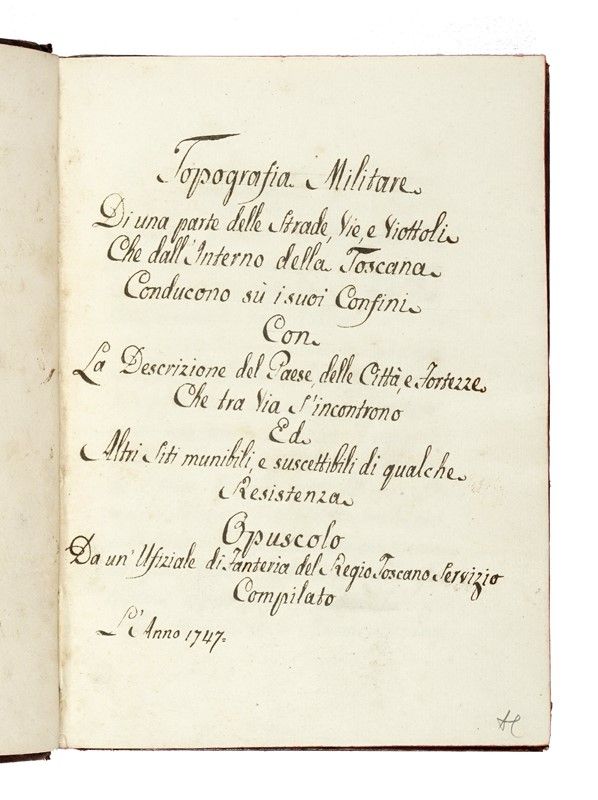 Topografia Militare
Di una parte delle Strade, Vie, e Viottoli
Che dall'Interno della Toscana
Conducono sù i suoi Confini
Con
La Descrizione del Paese, delle Città, e Fortezze
Che tra Via S'incontrono
Ed
Altri Siti munibili, e suscettibili di qualche
Resistenza
Opuscolo
Da un' Ufiziale di Fanteria del Regio Toscano Servizio
Compilato
L'Anno 1747=